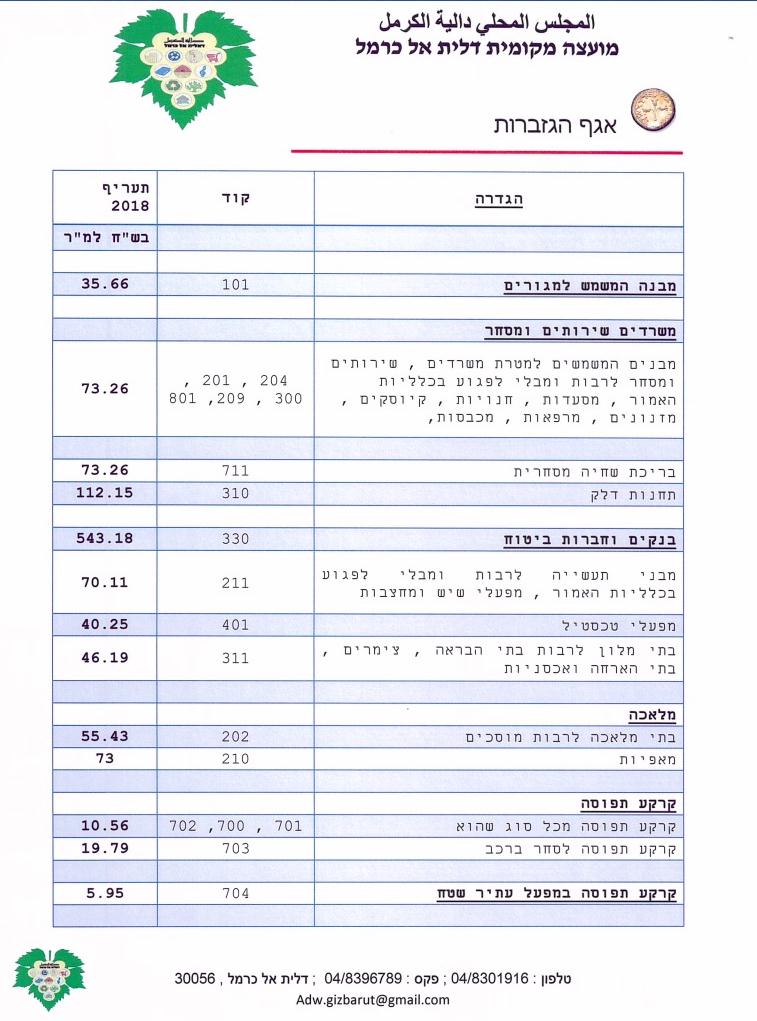 المجلس المحلي دالية الكرمل
מועצה מקומית דלית אל כרמל
אגף הגזברות
הגדרה קוד תעריף 2018
בש"ח למ"ר
מבנה המשמש למגורים 101 35.66
משרדים שירותים ומסחר
מבנים המשמשים למטרת משרדים , שירותים
ומסחר לרבות ומבלי לפגוע בכלליות
האמור , מסעדות , חנויות , קיוסקים ,
מזנונים , מרפאות , מכבסות,
204 , 201 ,
300 , 209, 801
73.26
בריכת שחיה מסחרית 711 73.26
תחנות דלק 310 112.15
בנקים וחברות ביטוח 330 543.18
מבני תעשייה לרבות ומבלי לפגוע
בכלליות האמור , מפעלי שיש ומחצבות
211 70.11
מפעלי טכסטיל 401 40.25
בתי מלון לרבות בתי הבראה , צימרים ,
בתי הארחה ואכסניות
311 46.19
מלאכה
בתי מלאכה לרבות מוסכים 202 55.43
מאפיות 210 73
קרקע תפוסה
קרקע תפוסה מכל סוג שהוא 701 , 700, 702 10.56
קרקע תפוסה לסחר ברכב 703 19.79
קרקע תפוסה במפעל עתיר שטח 704 5.95
טלפון : 04/8301916 ; פקס : 04/8396789 ; דלית אל כרמל , 30056
Adw.gizbarut@gmail.com